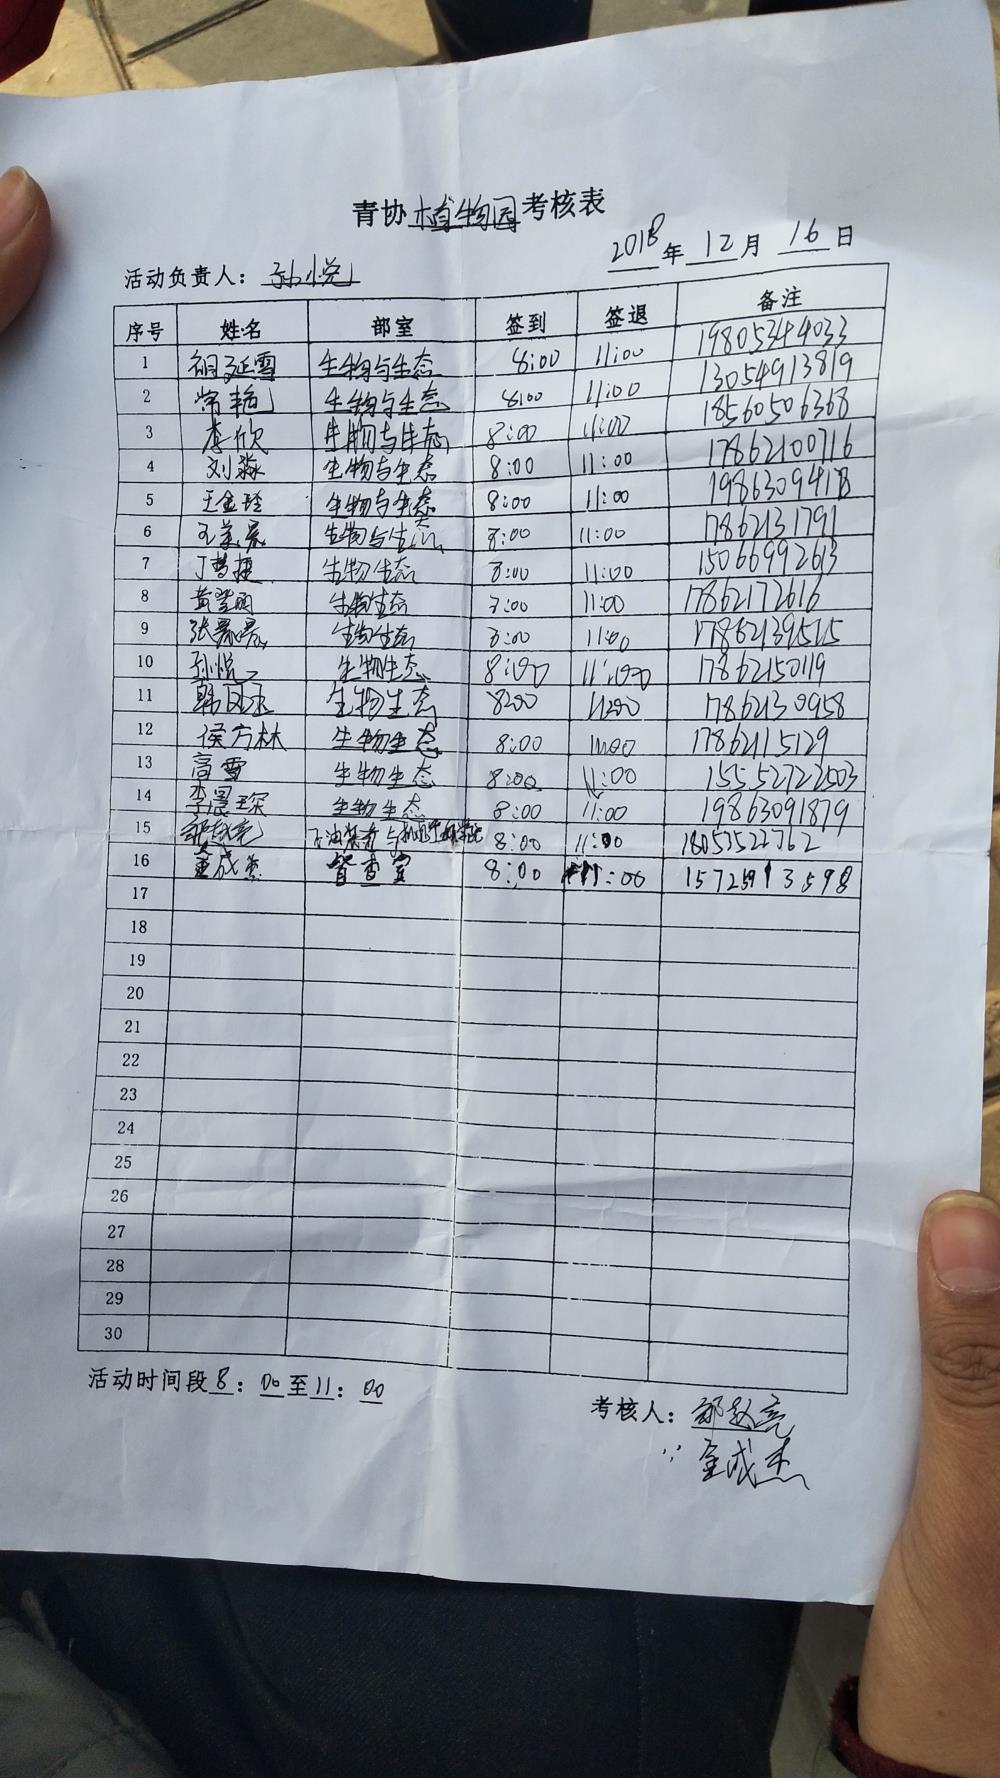 青协植物园考核表
2018年12月16日
活动负责人：孙悦
序号 姓名 部室 签到 签退 备注
1 延雪 生物与生态 8:00 11:00 19805344033
2 常艳 生物与生态 8:00 11:00 13054913819
3 李欣 生物与生态 8:00 11:00 18560506368
4 刘淼 生物与生态 8:00 11:00 17862100716
5 王金玲 生物与生态 8:00 11:00
6 王美晨 生物与生态 8:00 11:00 17862131791
7 丁梦捷 生物生态 8:00 11:00 15066992613
8 黄 雨 生物生态 8:00 11:00 17862172616
9 张晨晨 生物生态 8:00 11:00 17862139515
10 孙悦 生物生态 8:00 11:00 17862150119
11 韩 生物生态 8:00 11:00 17862130958
12 侯方林 生物生态 8:00 11:00 17862115129
13 高雪 生物生态 8:00 11:00 15552722503
14 李晨琛 生物生态 8:00 11:00 19863091879
15 石油装备与机电 8:00 11:00
16 董成杰 督查室 8:00 11:00 15725913598
17
18
19
20
21
22
23
24
25
26
27
28
29
30
活动时间段8：00至11：00
考核人：
董成杰